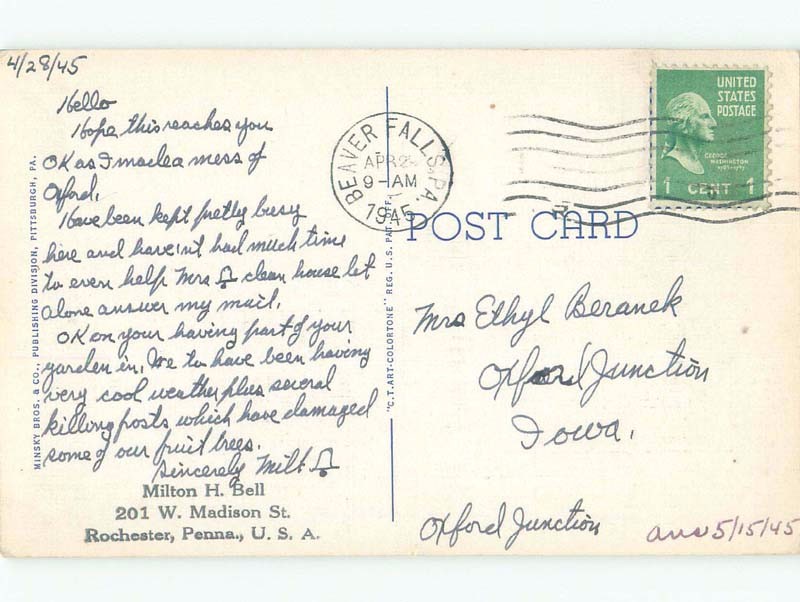 4/28/45
Hello
Hope this reaches you
OK as I made a mess of
Oxford,
Have been kept pretty busy
here and have in't had much time
to even help Mrs 🔔 clean house let
alone answer my mail.
OK on your having part of your
garden in, We to have been having
very cool weather plus several
killing frosts which have damaged
some of our fruit trees.
Sincerely Milt 🔔
Milton H. Bell
201 W. Madison St.
Rochester, Penna., U. S. A.
MINSKY BROS. & CO., PUBLISHING DIVISION, PITTSBURGH, PA.
"C.T. ART-COLORTONE" REG. U.S. PAT. OFF.
BEAVER FALLS, PA.
APR 2
9 - AM
1945
POST CARD
UNITED
STATES
POSTAGE
GEORGE
WASHINGTON
1 CENT 1
Mrs Ethyl Beranek
Oxford Junction
Iowa,
Oxford Junction
ans 5/15/45